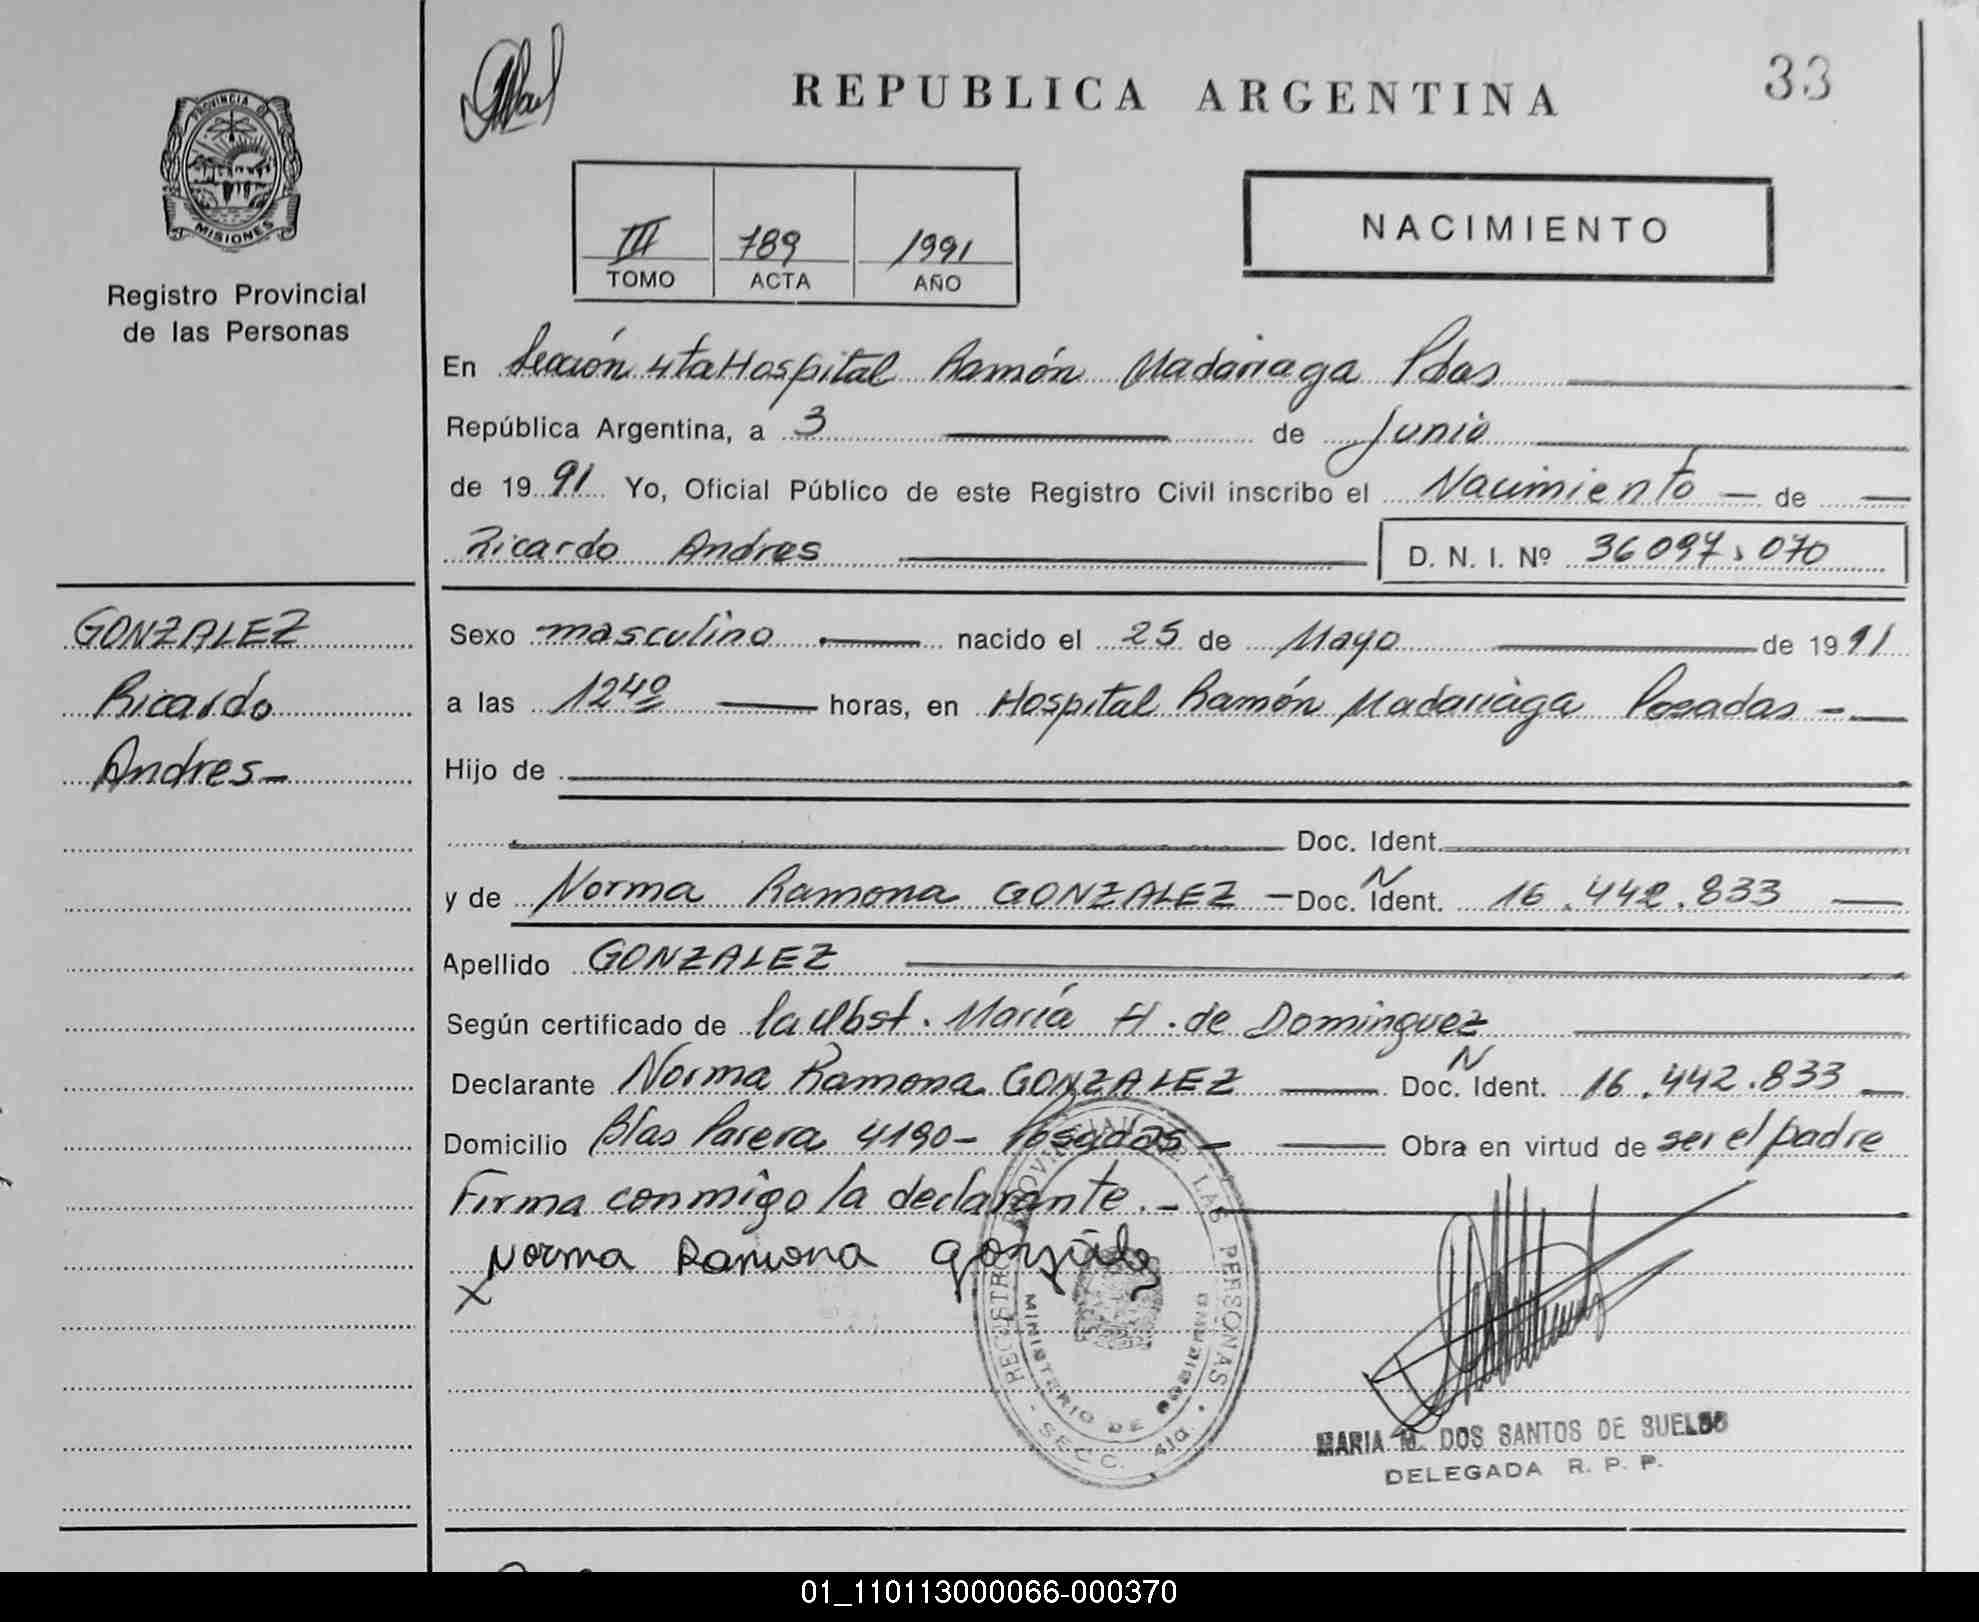 REPUBLICA ARGENTINA
33
PROVINCIA DE
MISIONES
Registro Provincial
de las Personas
III 789 1991
TOMO ACTA AÑO
NACIMIENTO
En Sección 4ta Hospital Ramón Madariaga Pdas
República Argentina, a 3 de Junio
de 1991 Yo, Oficial Público de este Registro Civil inscribo el Nacimiento — de —
Ricardo Andres D. N. I. Nº 36097.070
GONZALEZ
Ricardo
Andres—
Sexo masculino nacido el 25 de Mayo de 1991
a las 12 40 horas, en Hospital Ramón Madariaga Posadas - —
Hijo de
Doc. Ident.
y de Norma Ramona GONZALEZ — Doc. N Ident. 16.442.833 —
Apellido GONZALEZ
Según certificado de la Obst. María H. de Dominguez
Declarante Norma Ramona GONZALEZ — Doc. N Ident. 16.442.833 —
Domicilio Blas Parera 4190- Posadas — Obra en virtud de ser el padre
Firma conmigo la declarante.-
x Norma Ramona González
REGISTRO PROVINCIAL DE LAS PERSONAS
MINISTERIO DE GOBIERNO
SECC. 4ta.
MARIA M. DOS SANTOS DE SUELDO
DELEGADA R. P. P.
01_110113000066-000370